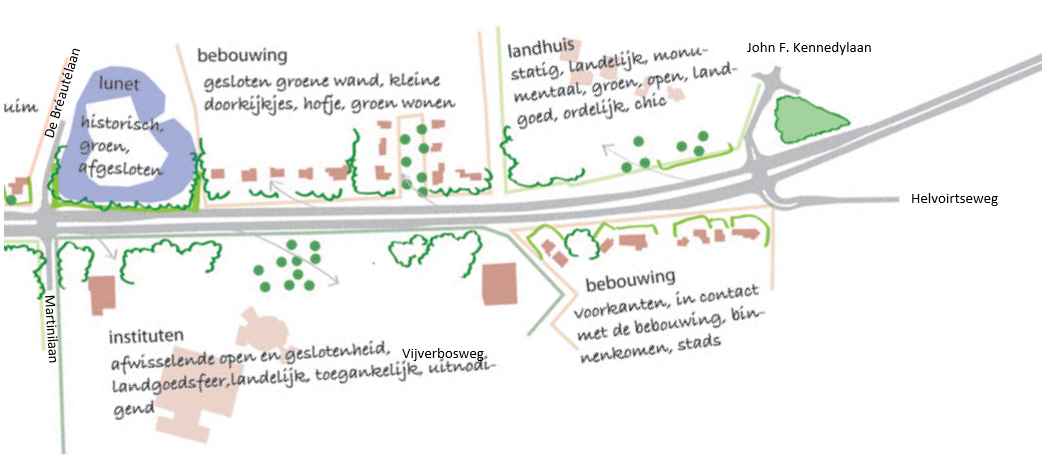 uim
De Bréautélaan
lunet
historisch,
groen,
afgesloten
bebouwing
gesloten groene wand, kleine
doorkijkjes, hofje, groen wonen
landhuis
statig, landelijk, monu-
mentaal, groen, open, land-
goed, ordelijk, chic
John F. Kennedylaan
Helvoirtseweg
Martinilaan
instituten
afwisselende open en geslotenheid,
landgoedsfeer,landelijk, toegankelijk, uitnodi-
gend
Vijverbosweg
bebouwing
voorkanten, in contact
met de bebouwing, bin-
nenkomen, stads